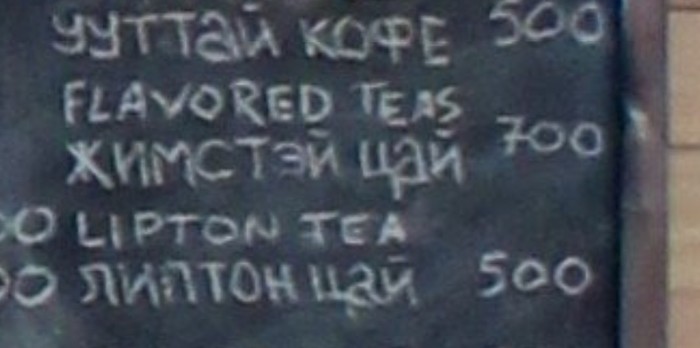 УУТТАЙ КОФЕ 500
FLAVORED TEAS
ЖИМСТЭЙ ЦАЙ 700
00 LIPTON TEA
00 ЛИПТОН ЦАЙ 500